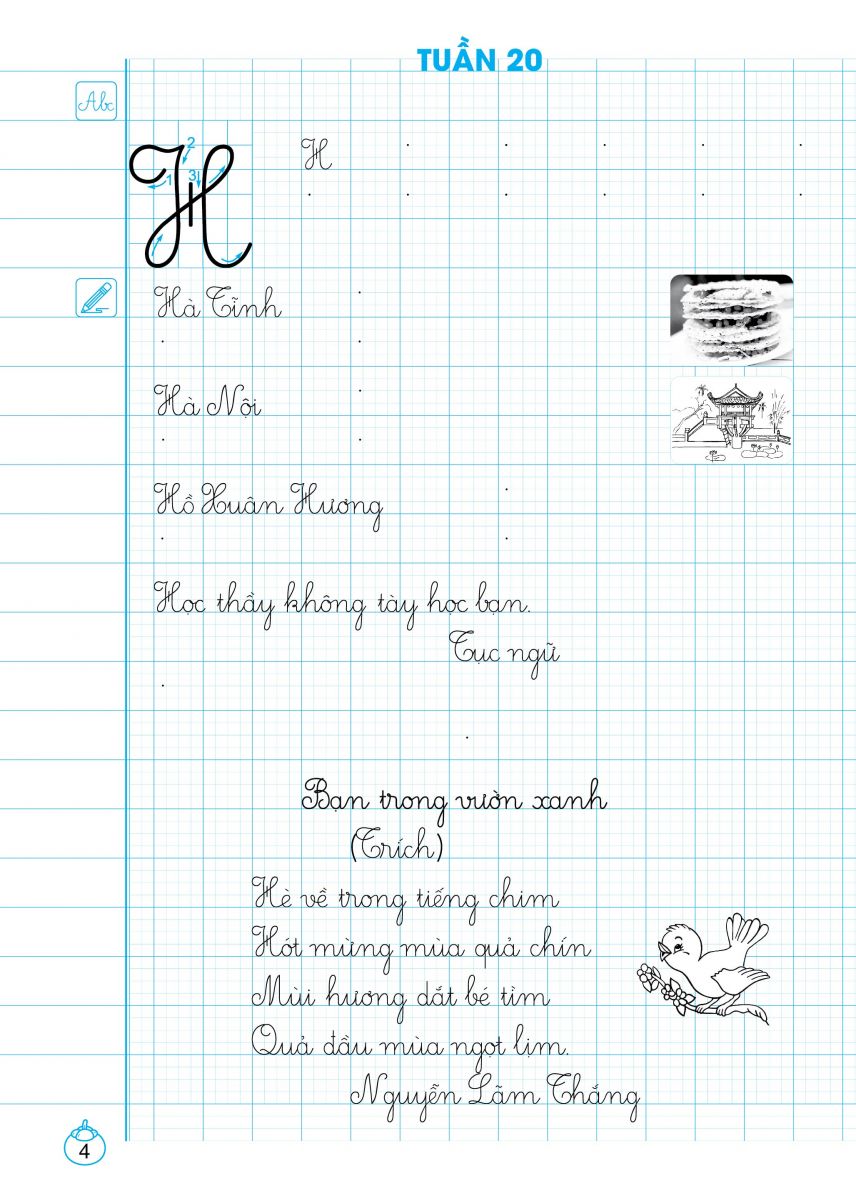 TUẦN 20
Abc
1 2 3
H
Hà Tĩnh
Hà Nội
Hồ Xuân Hương
Học thầy không tày học bạn.
Tục ngữ
Bạn trong vườn xanh
(Trích)
Hè về trong tiếng chim
Hót mừng mùa quả chín
Mùi hương dắt bé tìm
Quả đầu mùa ngọt lịm.
Nguyễn Lãm Thắng
4